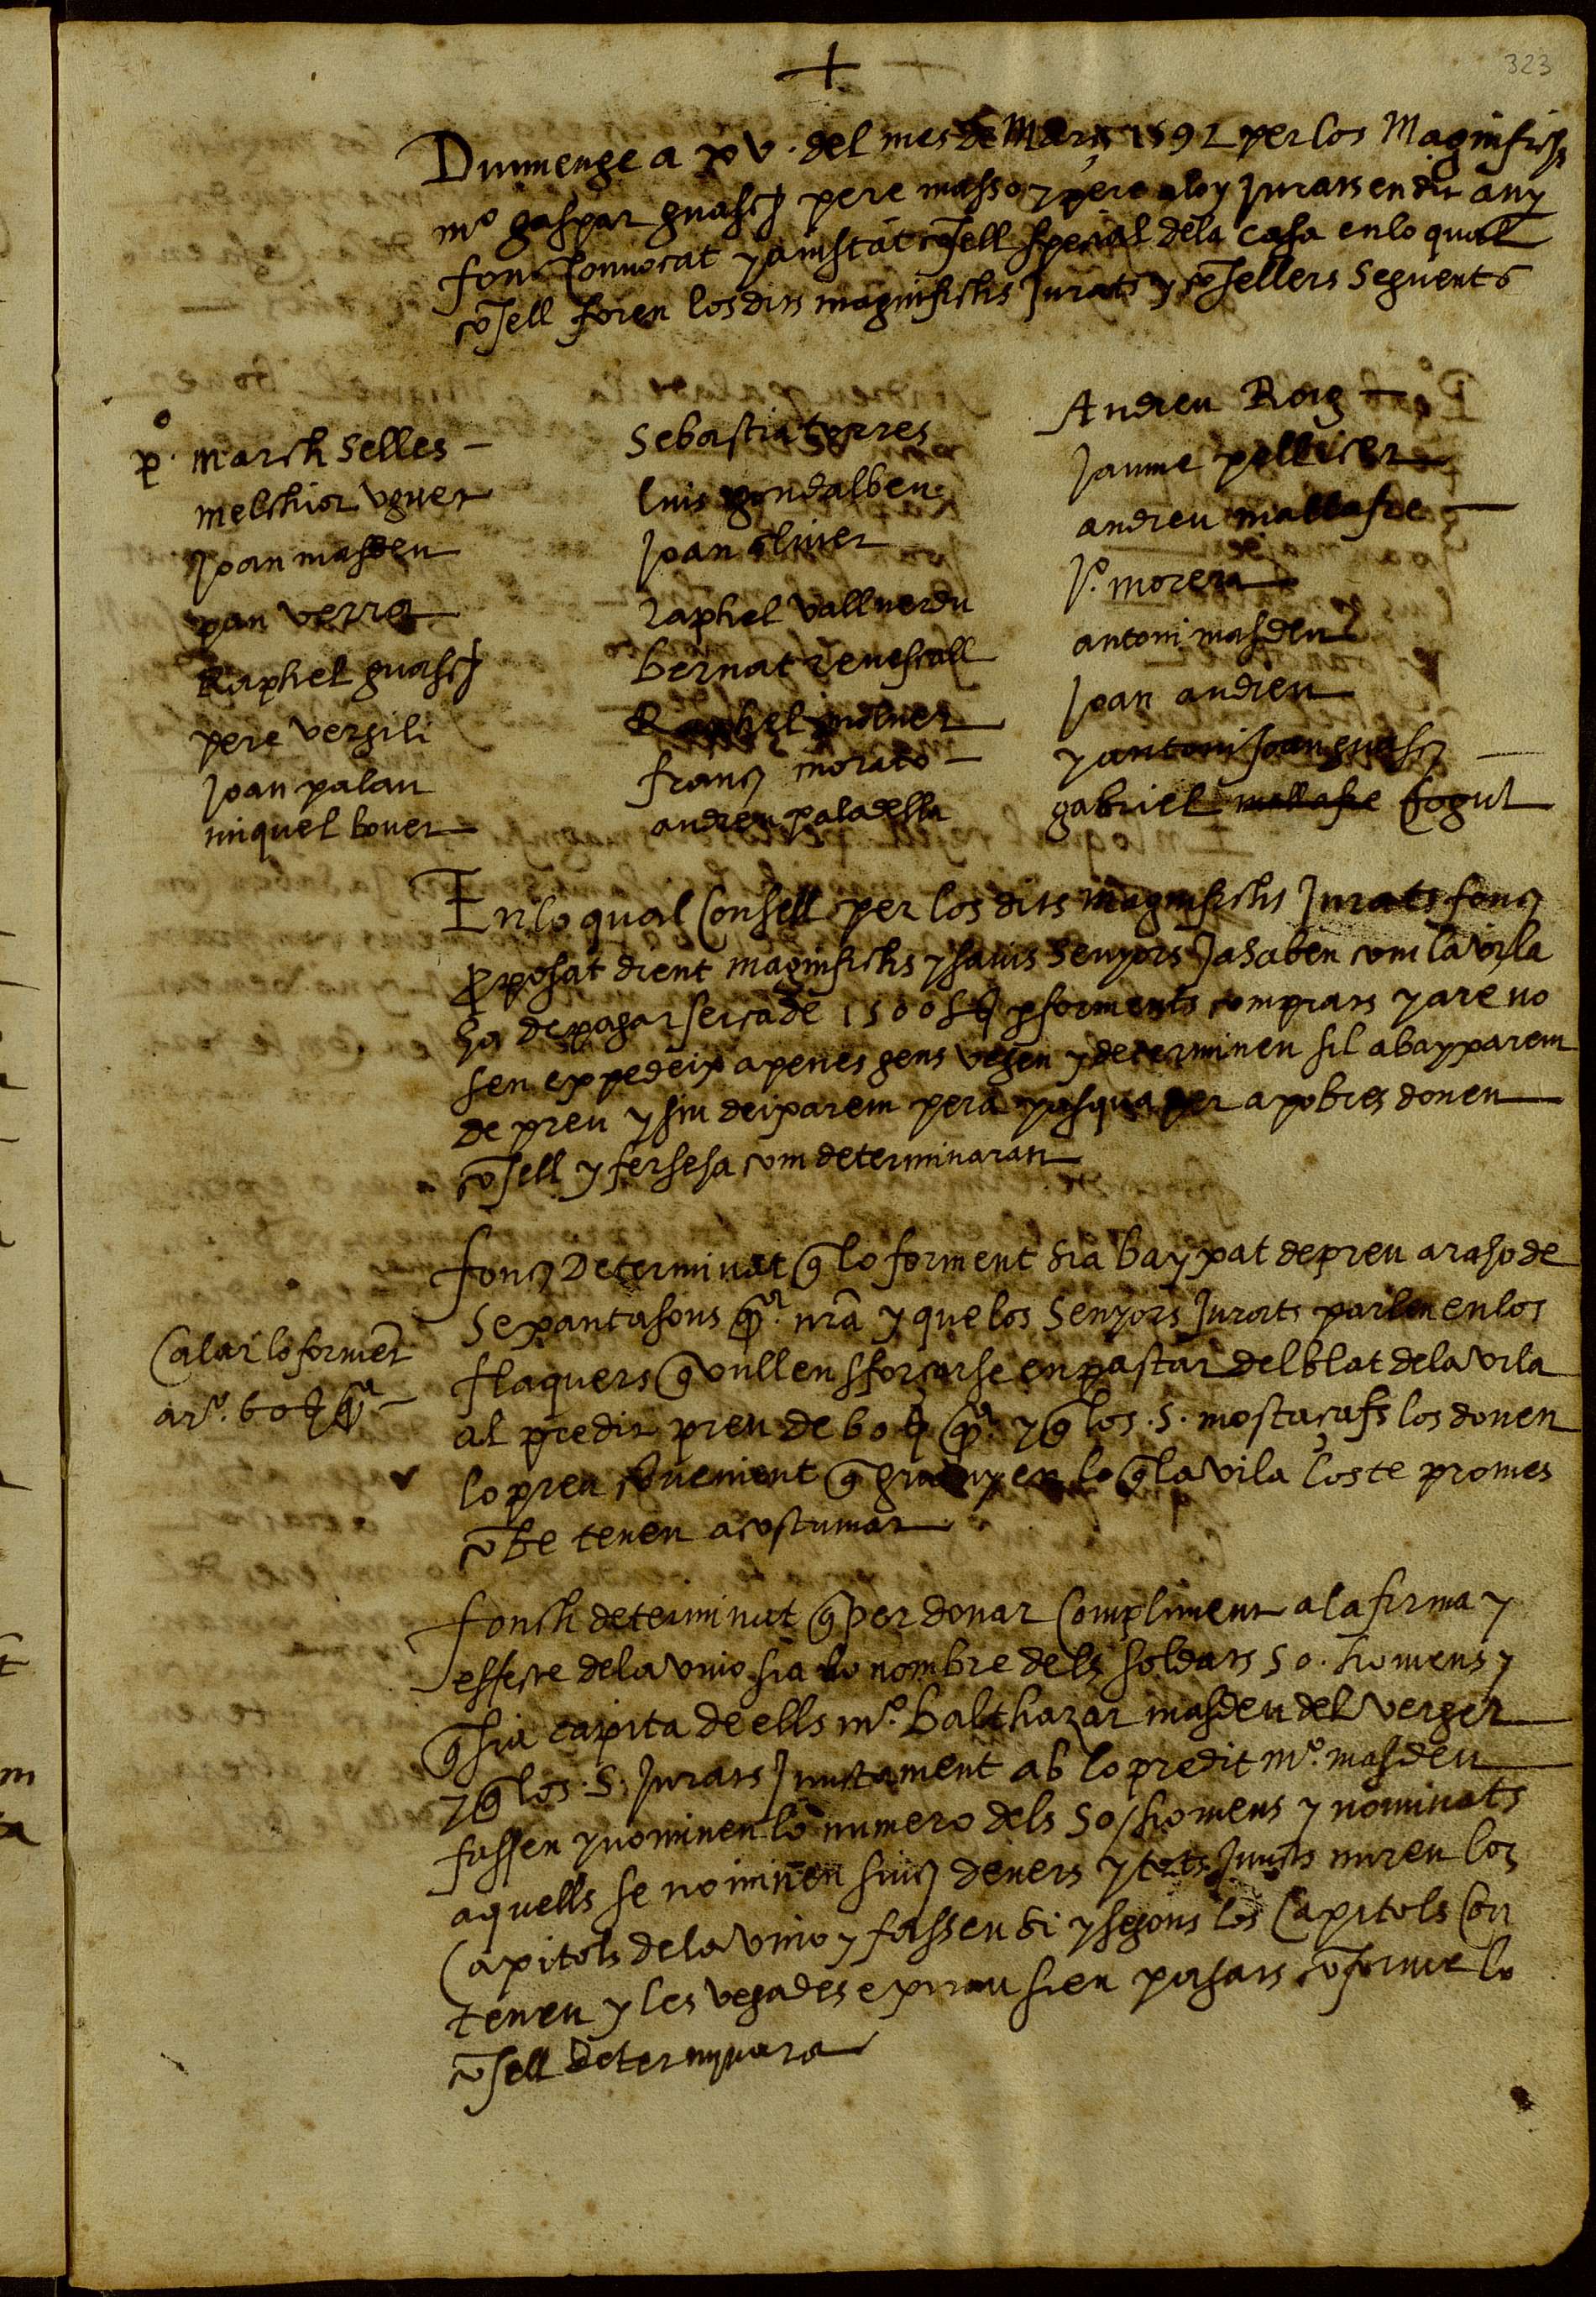 323
+
Diumenge a xv. del mes de Mars 1592 per los Magnifichs
mº gaspar guasch pere masso y pere aloy Jurats en dit any
fonc Convocat y aiustat cõsell special dela casa enlo qual
cõsell foren los dits magnifichs Jurats y cõsellers Seguents
pº. march Selles
melchior uguet
Joan masdeu
pau verra
Raphel guasch
pere vergili
Joan palau
miquel bover
Sebastia torres
luis gondalbeu
Joan oliver
raphel vallverdu
bernat renescall
Raphel moliner
franch morato
andreu paladella
Andreu Roig
Jaume pellicer
andreu mallafre
Jº. morera
antoni masdeu
Joan andreu
y antoni Joan guasch
gabriel mallafre Cogul
En lo qual Consell per los dits magnifichs Jurats fonch
pposat dient magnifichs y savis Senyors Ja saben com la vila
ha de pagar serca de 1500 ll p forments comprats y are no
sen expedeix apenes gens vegen y determinen sil abayxarem
de preu y sin deixarem pera pasqua per a pobres donen
cõsell y fersesa com determinaran
fonch Determinat q̃ lo forment sia bayxat de preu a raho de
Sexanta sous qrª. nrã y que los Senyors Jurats parlen en los
flaquers q̃ vullen sforçarse en pastar del blat dela vila
al predit preu de 60 s qrª. y q̃ los .S. mostaçafs los donen
lo preu cõvenient q̃ guanyen lo q̃ la vila los te promes
cõ be tenen acostumat
Calar lo formẽt
a rº. 60 s qrª
fonch determinat q̃ per donar Compliment a la firma y
effecte dela unio sia lo nombre dels soldats 50. homens y
q̃ sia capita de ells mº. balthazar masdeu del verger
y q̃ los .S. Jurats Juntament ab lo predit mº. masdeu
fassen y nominen lo numero dels 50 homens y nominats
aquells se nominen sinch deners y tots Juncts miren los
Capitols dela unio y fassen si y segons los Capitols Con
tenen y les vegades exiran sien pagats cõforme lo
cõsell determinara